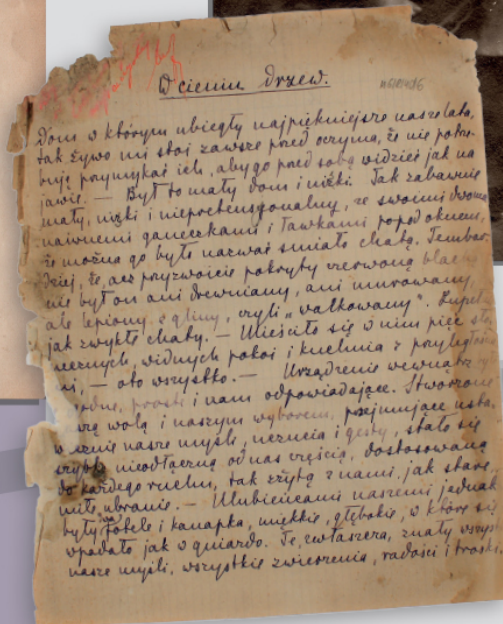 W cieniu drzew.
Dom w którym ubiegły najpiękniejsze nasze lata,
tak żywo mi stoi zawsze przed oczyma, że nie potrze-
buję przymykać ich, aby go przed sobą widzieć jak na
jawie. — Był to mały dom i nizki. Tak zabawnie
mały, nizki i niepretensyonalny, ze swoimi dwoma
naiwnemi ganeczkami i ławkami popod oknem,
że można go było nazwać śmiało chatą. Tembar-
dziej, że, acz przyzwoicie pokryty czerwoną blachą
nie był on ani drewniany, ani murowany,
ale lepiony z gliny, czyli „wałkowany”. Zupełn
jak zwykłe chaty. — Mieściło się w nim pięć sło
necznych, widnych pokoi i kuchnia z
mi, — oto wszystko. — Urządzenie wewnątrz
prosti i nam odpowiadające. Stworzone
wolą i naszym wyborem, przejmujące
nasze myśli, uczucia i gesty, stało się
nieodłączną od nas częścią, dostosowaną
do każdego ruchu, tak zżytą z nami, jak stare,
miłe ubranie. — Ulubieńcami naszemi jednak
były dwa fotele i kanapka, miękkie, głębokie, w które się
wpadało jak w gniazdo. Te, zwłaszcza, znały wszys
nasze myśli, wszystkie zwierzenia, radości i troski.